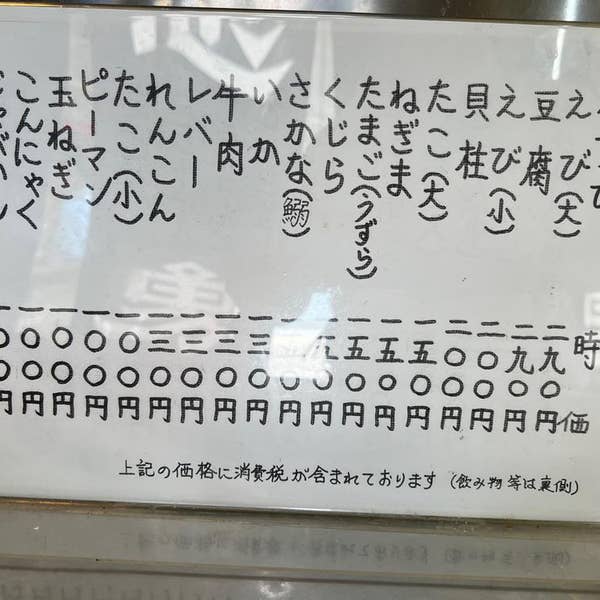 時価
えび(大) 二九〇円
豆腐 二九〇円
えび(小) 二〇〇円
貝柱 二〇〇円
たこ(大) 一五〇円
ねぎま 一五〇円
たまご(うずら) 一五〇円
くじら 一五〇円
さかな(鰯) 一五〇円
いか 一三〇円
牛肉 一三〇円
レバー 一三〇円
れんこん 一三〇円
たこ(小) 一〇〇円
ピーマン 一〇〇円
玉ねぎ 一〇〇円
こんにゃく 一〇〇円
一〇〇円
上記の価格に消費税が含まれております (飲み物等は裏側)